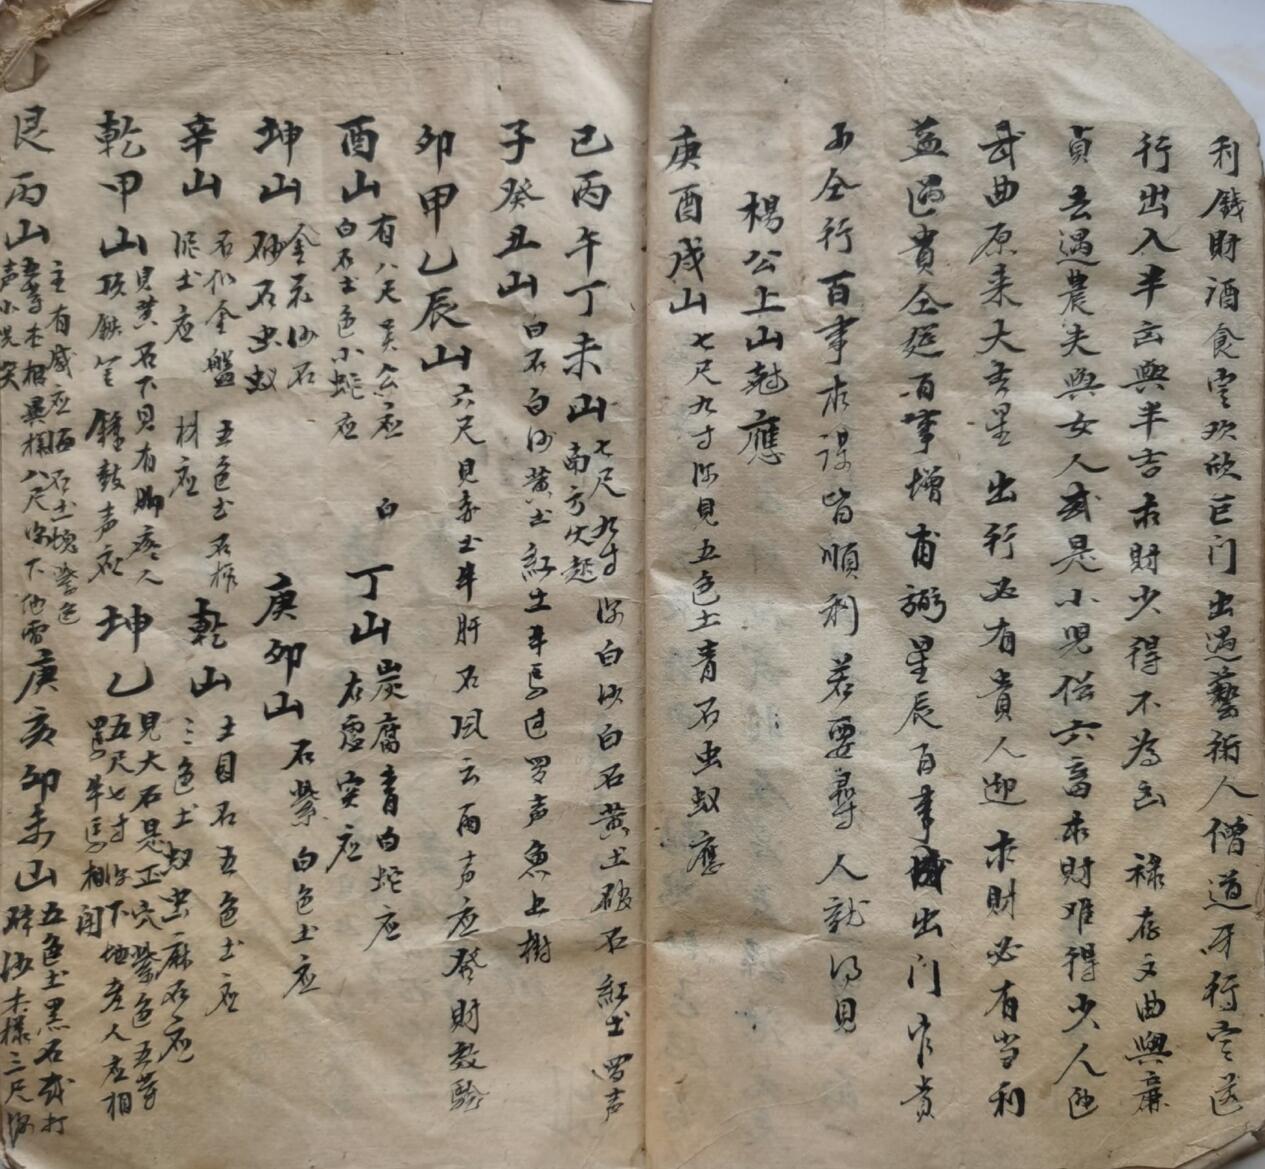 利錢財酒食定欢欣巨门出遇藝術人僧道牙行定送
行出入半凶與半吉求財少得不為凶 祿存文曲與廉
貞去遇農夫與女人或是小児偺六畜求財难得少人
武曲原来大吉星出行必有貴人迎求財必有当利
益遇貴全逕百事增甫弼星辰百事城出门官貴
求謀皆順利若要尋人就得見
楊公上山尅應
庚酉戌山七尺九寸深見五色土青石虫蚁應
巳丙午丁未山七尺九寸深白沙白石黄土破石紅土罗声
南方火起
子癸丑山白石白沙黄土紅土牛馬过罗声魚上樹
卯甲乙辰山六尺見赤土牛肝石风云雨声应發財教驗
酉山有八尺黄令应 白
白石土色小蛇应
丁山炭腐青白蛇应
在虚突应
坤山金衣沙石
砂石虫蚁
庚卯山石紫白色土应
辛山石似金盤 五色土石
泥土应 材应
乾山土目石五色土应
三色土蚁虫麻石应
乾甲山見黄石下見有脚疼人
項鉄 鐘鼓声应
坤乙見大石是正穴紫色五
五尺七寸深下地 人应相
牛馬相
艮丙山主有感应 石土塊紫色
八尺深下他雷
声小児哭
庚亥卯未山五色土黑石或打
碎沙木樣三尺深